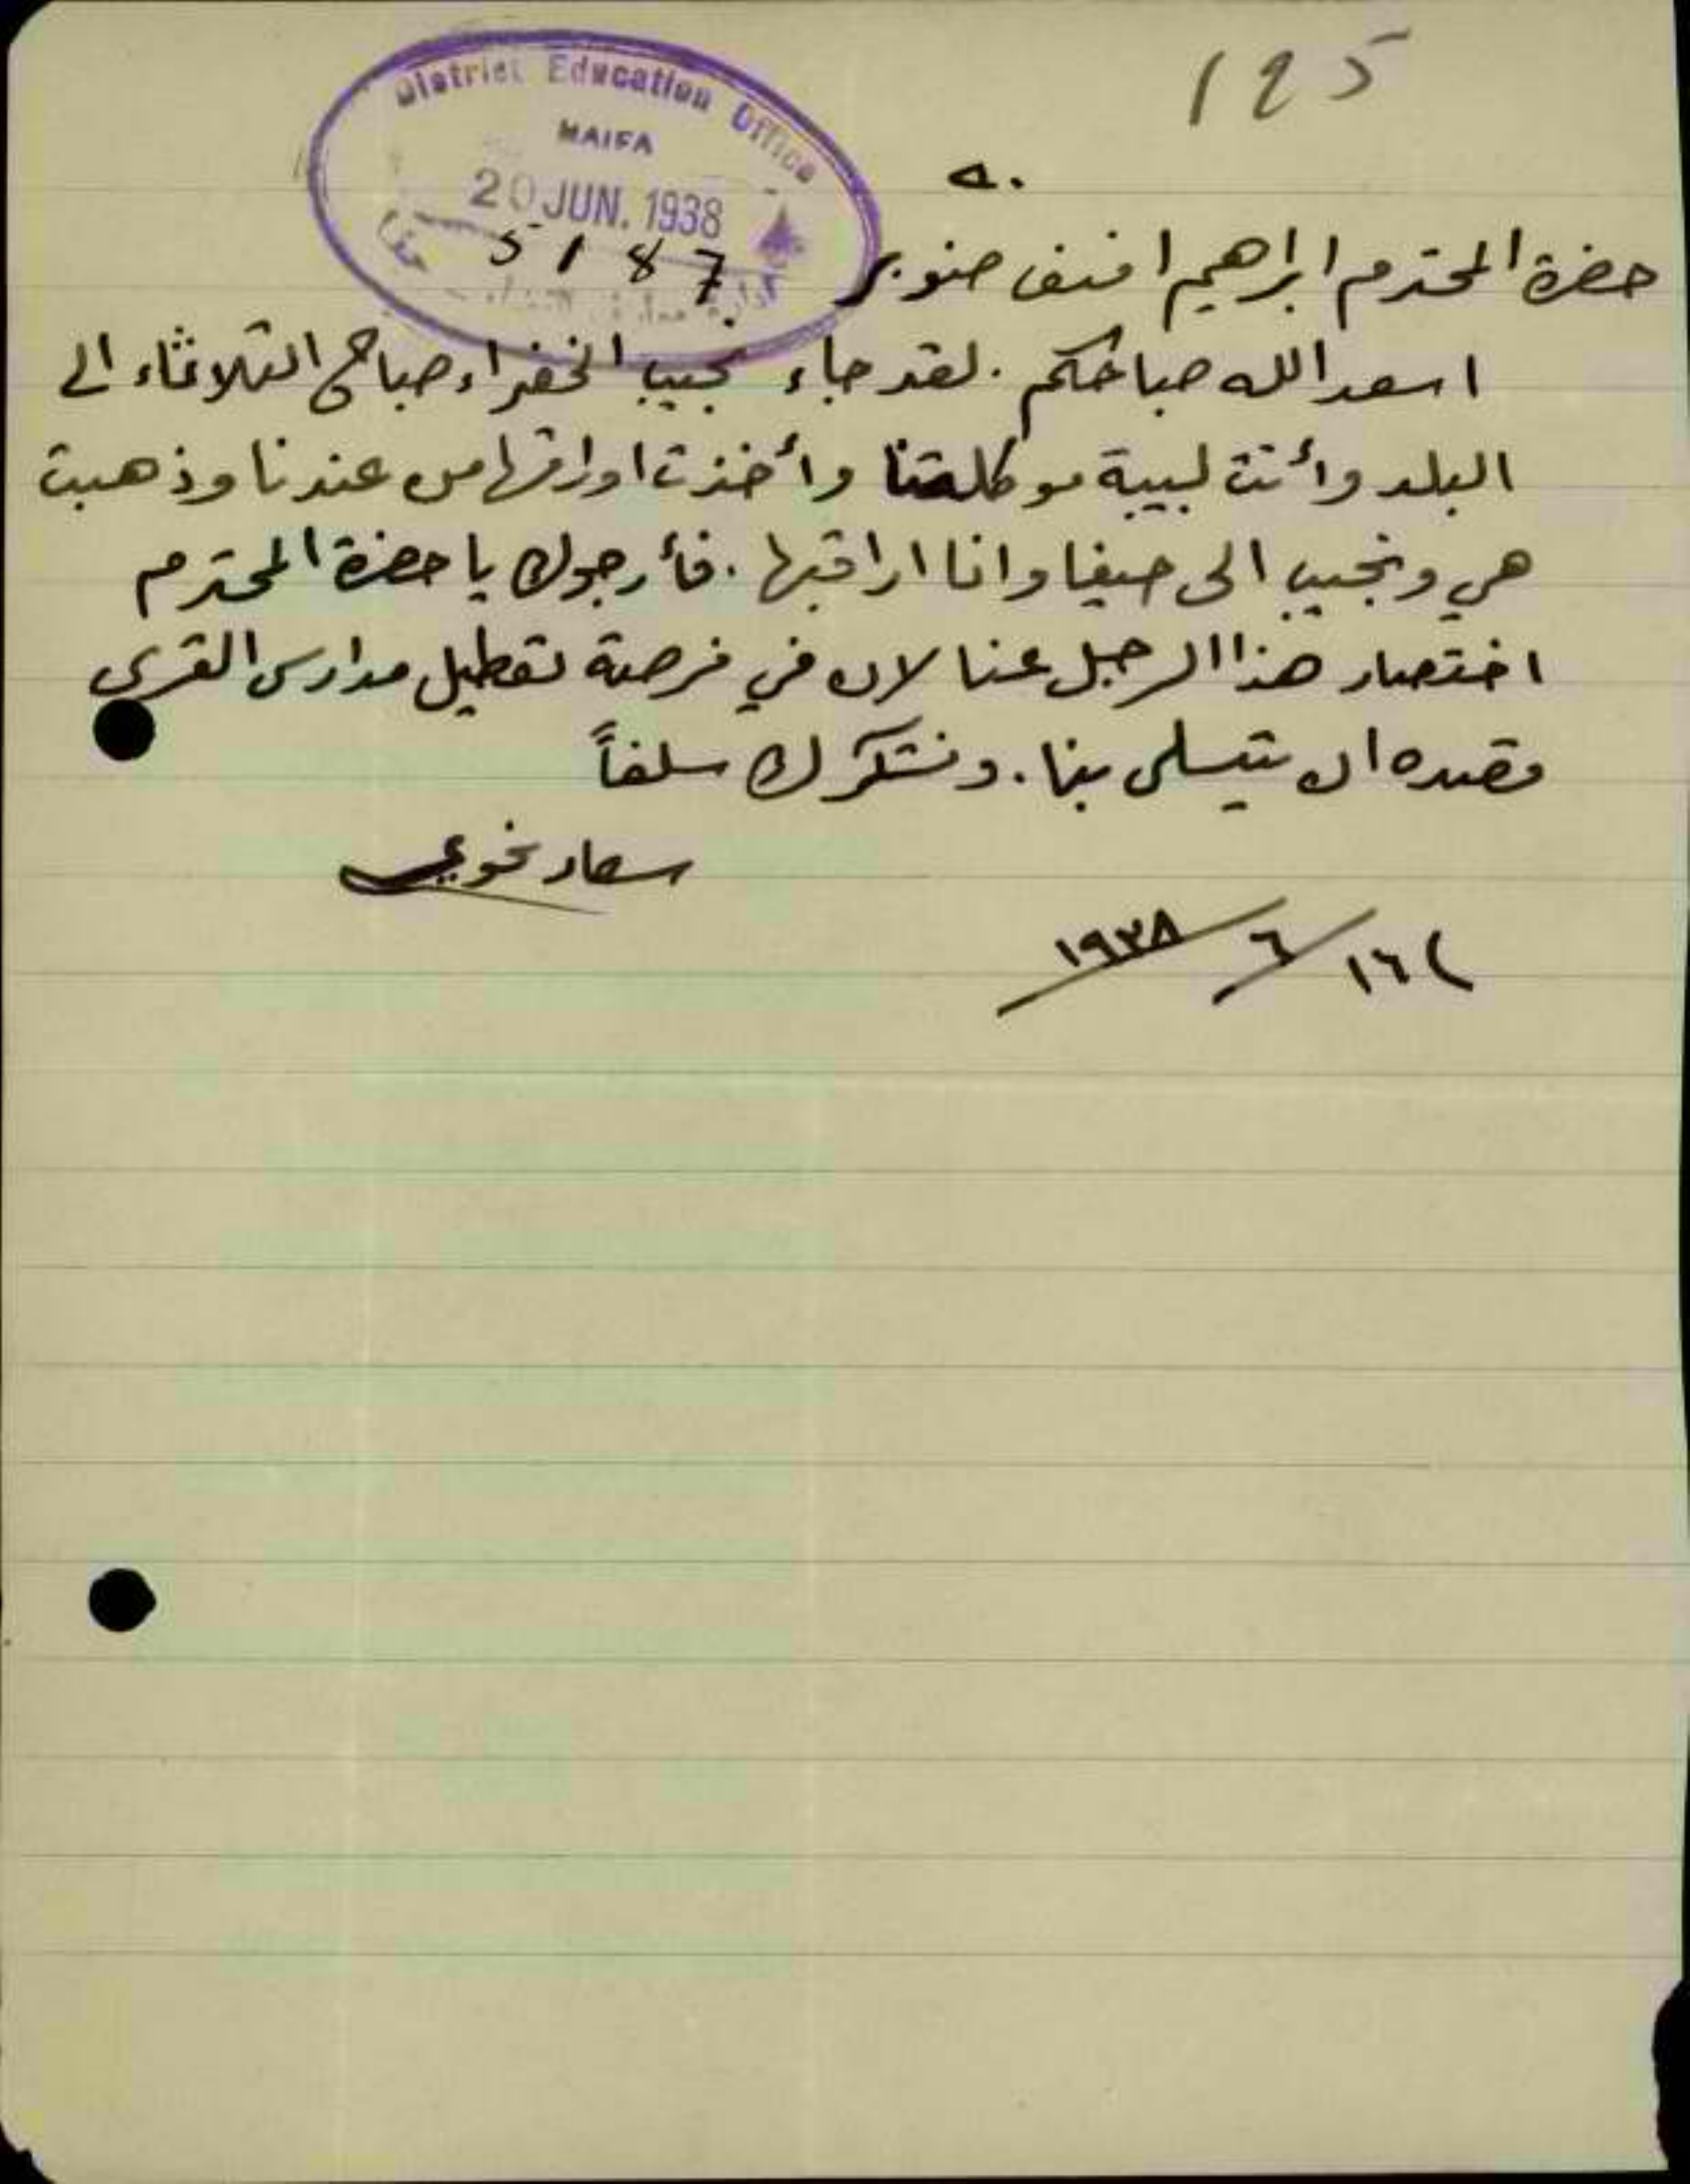 125
District Education Office
HAIFA
20 JUN. 1938
5187
حضرة المحترم ابراهيم افندي صنوبر
اسعد الله صباحكم . لقد جاء نجيب الخضراء صباح الثلاثاء الى
البلد وأتت لبيبة موكلتنا وأخذت اوراقها من عندنا وذهبت
هي ونجيب الى حيفا وانا اراقبها . فأرجوك يا حضرة المحترم
اختصار هذا الرجل عنا لان في فرصة تعطيل مدارس القرى
قصده ان يتسلى بنا . ونشكرك سلفاً
سعاد
١٦ / ٦ / ١٩٣٨